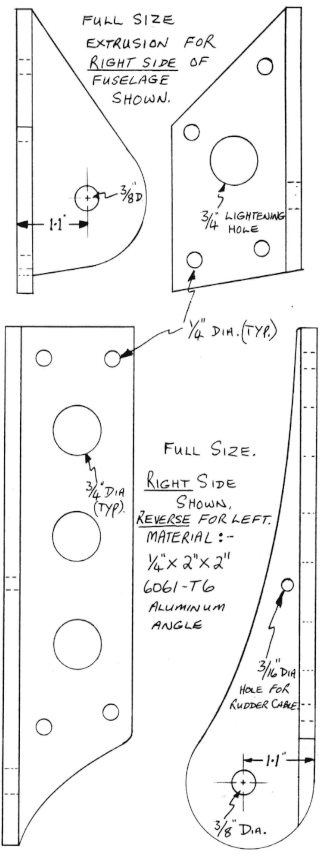 FULL SIZE
EXTRUSION FOR
RIGHT SIDE OF
FUSELAGE
SHOWN.
3/8" D.
1·1"
3/4" LIGHTENING
HOLE
1/4" DIA. (TYP.)
3/4" DIA
(TYP).
FULL SIZE.
RIGHT SIDE
SHOWN,
REVERSE FOR LEFT.
MATERIAL :-
1/4" X 2" X 2"
6061-T6
ALUMINUM
ANGLE
3/16" DIA
HOLE FOR
RUDDER CABLE.
1·1"
3/8" DIA.